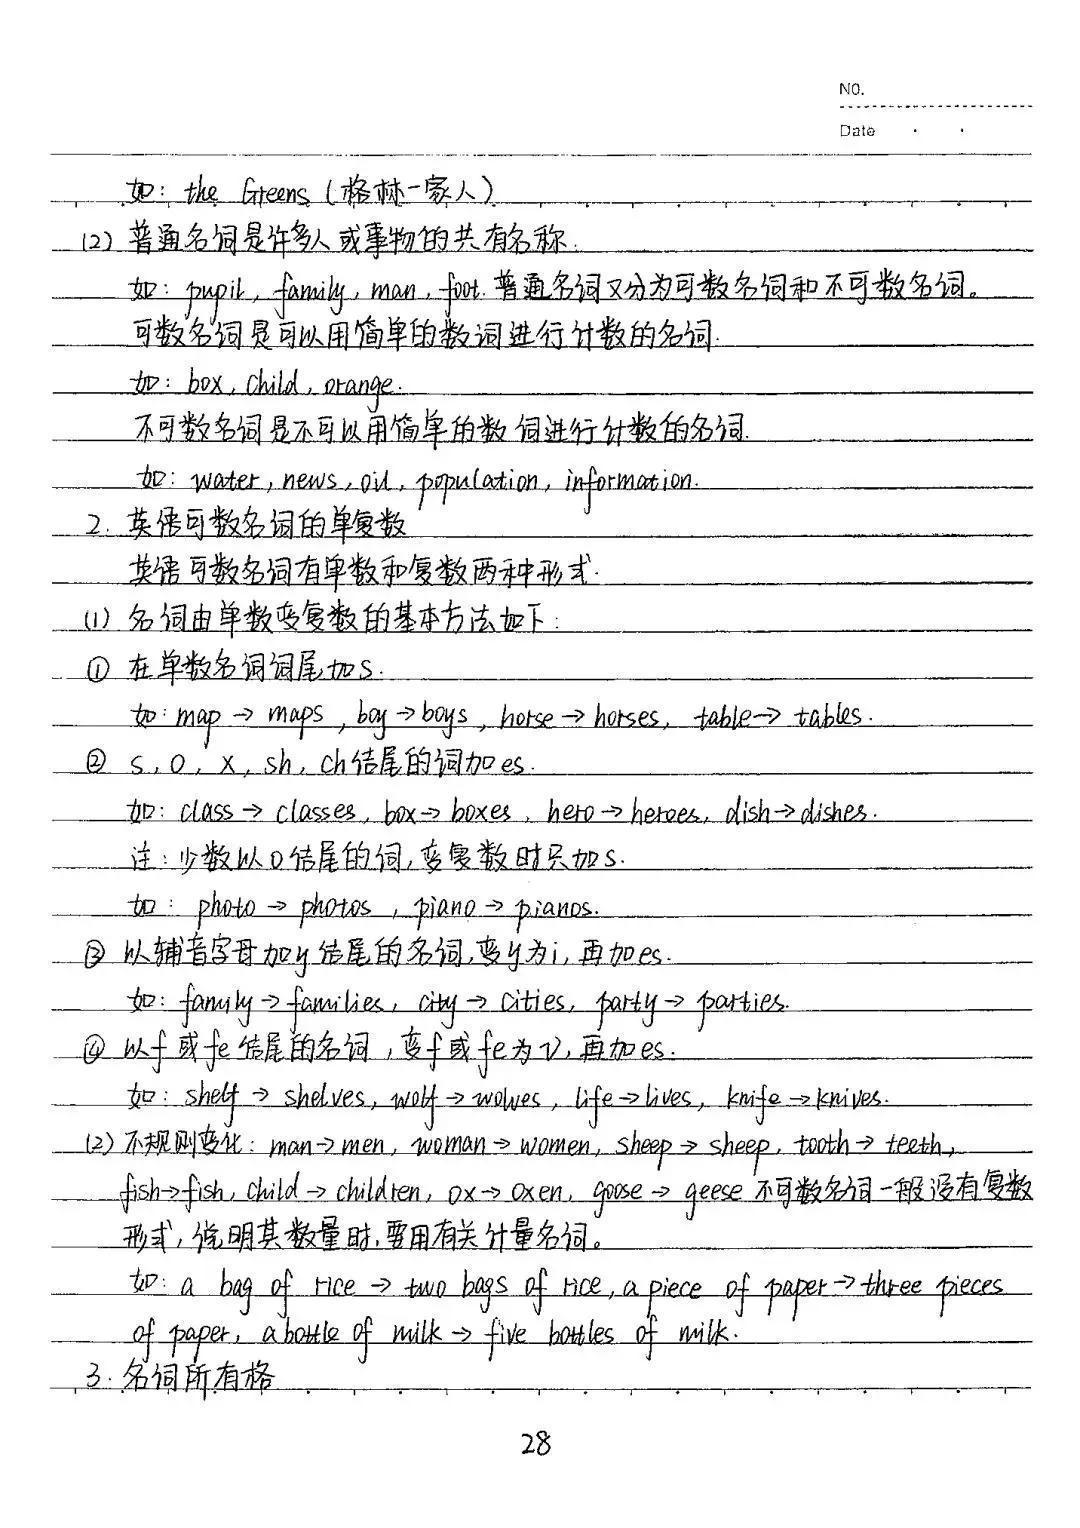 NO.
Date
如: the Greens (格林一家人)
(2) 普通名词是许多人或事物的共有名称.
如: pupil, family, man, foot. 普通名词又分为可数名词和不可数名词。
可数名词是可以用简单的数词进行计数的名词.
如: box, child, orange.
不可数名词是不可以用简单的数词进行计数的名词.
如: water, news, oil, population, information.
2. 英语可数名词的单复数
英语可数名词有单数和复数两种形式.
(1) 名词由单数变复数的基本方法如下:
① 在单数名词词尾加s.
如: map → maps, boy → boys, horse → horses, table → tables.
② s, o, x, sh, ch结尾的词加es.
如: class → classes, box → boxes, hero → heroes, dish → dishes.
注: 少数以o结尾的词, 变复数时只加s.
如: photo → photos, piano → pianos.
③ 以辅音字母加y结尾的名词, 变y为i, 再加es.
如: family → families, city → cities, party → parties.
④ 以f或fe结尾的名词, 变f或fe为v, 再加es.
如: shelf → shelves, wolf → wolves, life → lives, knife → knives.
(2) 不规则变化: man → men, woman → women, sheep → sheep, tooth → teeth,
fish → fish, child → children, ox → oxen, goose → geese 不可数名词一般没有复数
形式, 说明其数量时, 要用有关计量名词。
如: a bag of rice → two bags of rice, a piece of paper → three pieces
of paper, a bottle of milk → five bottles of milk.
3. 名词所有格
28